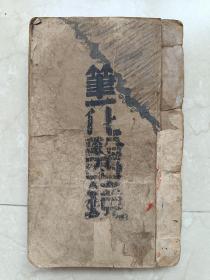 筆花醫鏡